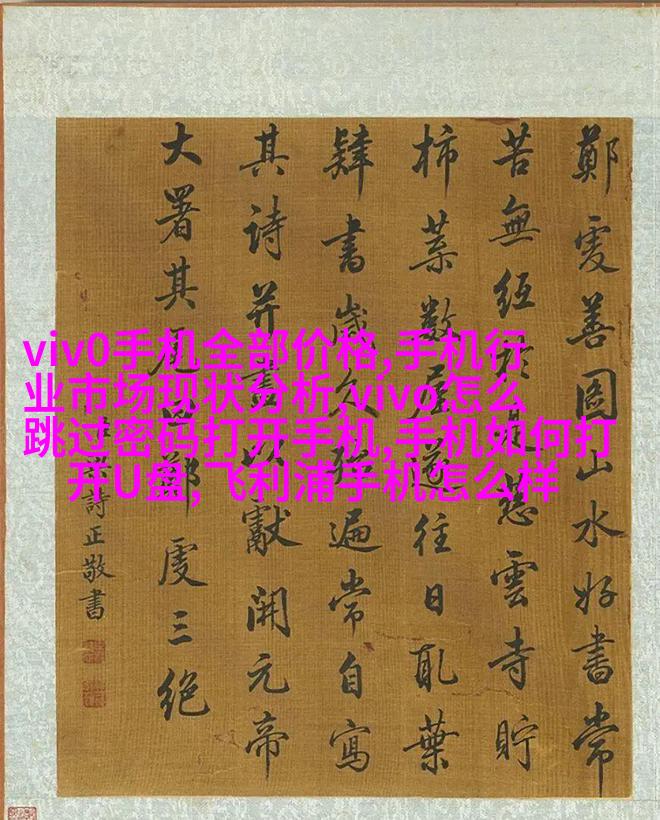 viv0手机全部价格,手机行
业市场现状分析,vivo怎么
跳过密码打开手机,手机如何打
开U盘,飞利浦手机怎么样
鄭虔善圖山水好書常
苦無紙於是慈雲寺貯
柿葉數屋遂往日取葉
肄書歲久殆遍常自寫
其詩并畫以獻開元帝
大署其尾曰鄭虔三絕
臣梁詩正敬書